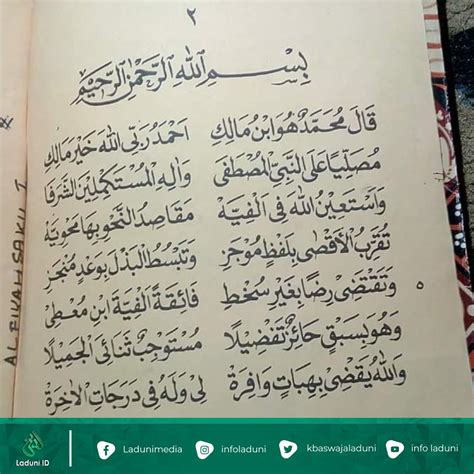 ٢
بِسْمِ اللهِ الرَّحْمٰنِ الرَّحِيْمِ
قَالَ مُحَمَّدٌ هُوَ ابْنُ مَالِكِ اَحْمَدُ رَبِّى اللهَ خَيْرَ مَالِكِ
مُصَلِّيًا عَلَى النَّبِيِّ الْمُصْطَفَى وَاٰلِهِ الْمُسْتَكْمِلِيْنَ الشَّرَفَا
وَاَسْتَعِيْنُ اللهَ فِى اَلْفِيَّةْ مَقَاصِدُ النَّحْوِ بِهَا مَحْوِيَّةْ
تُقَرِّبُ الْأَقْصَى بِلَفْظٍ مُوْجَزِ وَتَبْسُطُ الْبَذْلَ بِوَعْدٍ مُنْجَزِ
وَتَقْتَضِى رِضًا بِغَيْرِ سُخْطِ فَائِقَةً اَلْفِيَّةَ ابْنِ مُعْطِى ٥
وَهْوَ بِسَبْقٍ حَائِزٌ تَفْضِيْلًا مُسْتَوْجِبٌ ثَنَائِيَ الْجَمِيْلَا
وَاللهُ يَقْضِى بِهِبَاتٍ وَافِرَةْ لِى وَلَهُ فِى دَرَجَاتِ الْاٰخِرَةْ
ALFIYAH SAKU
Laduni ID
Ladunimedia
infoladuni
kbaswajaladuni
info laduni